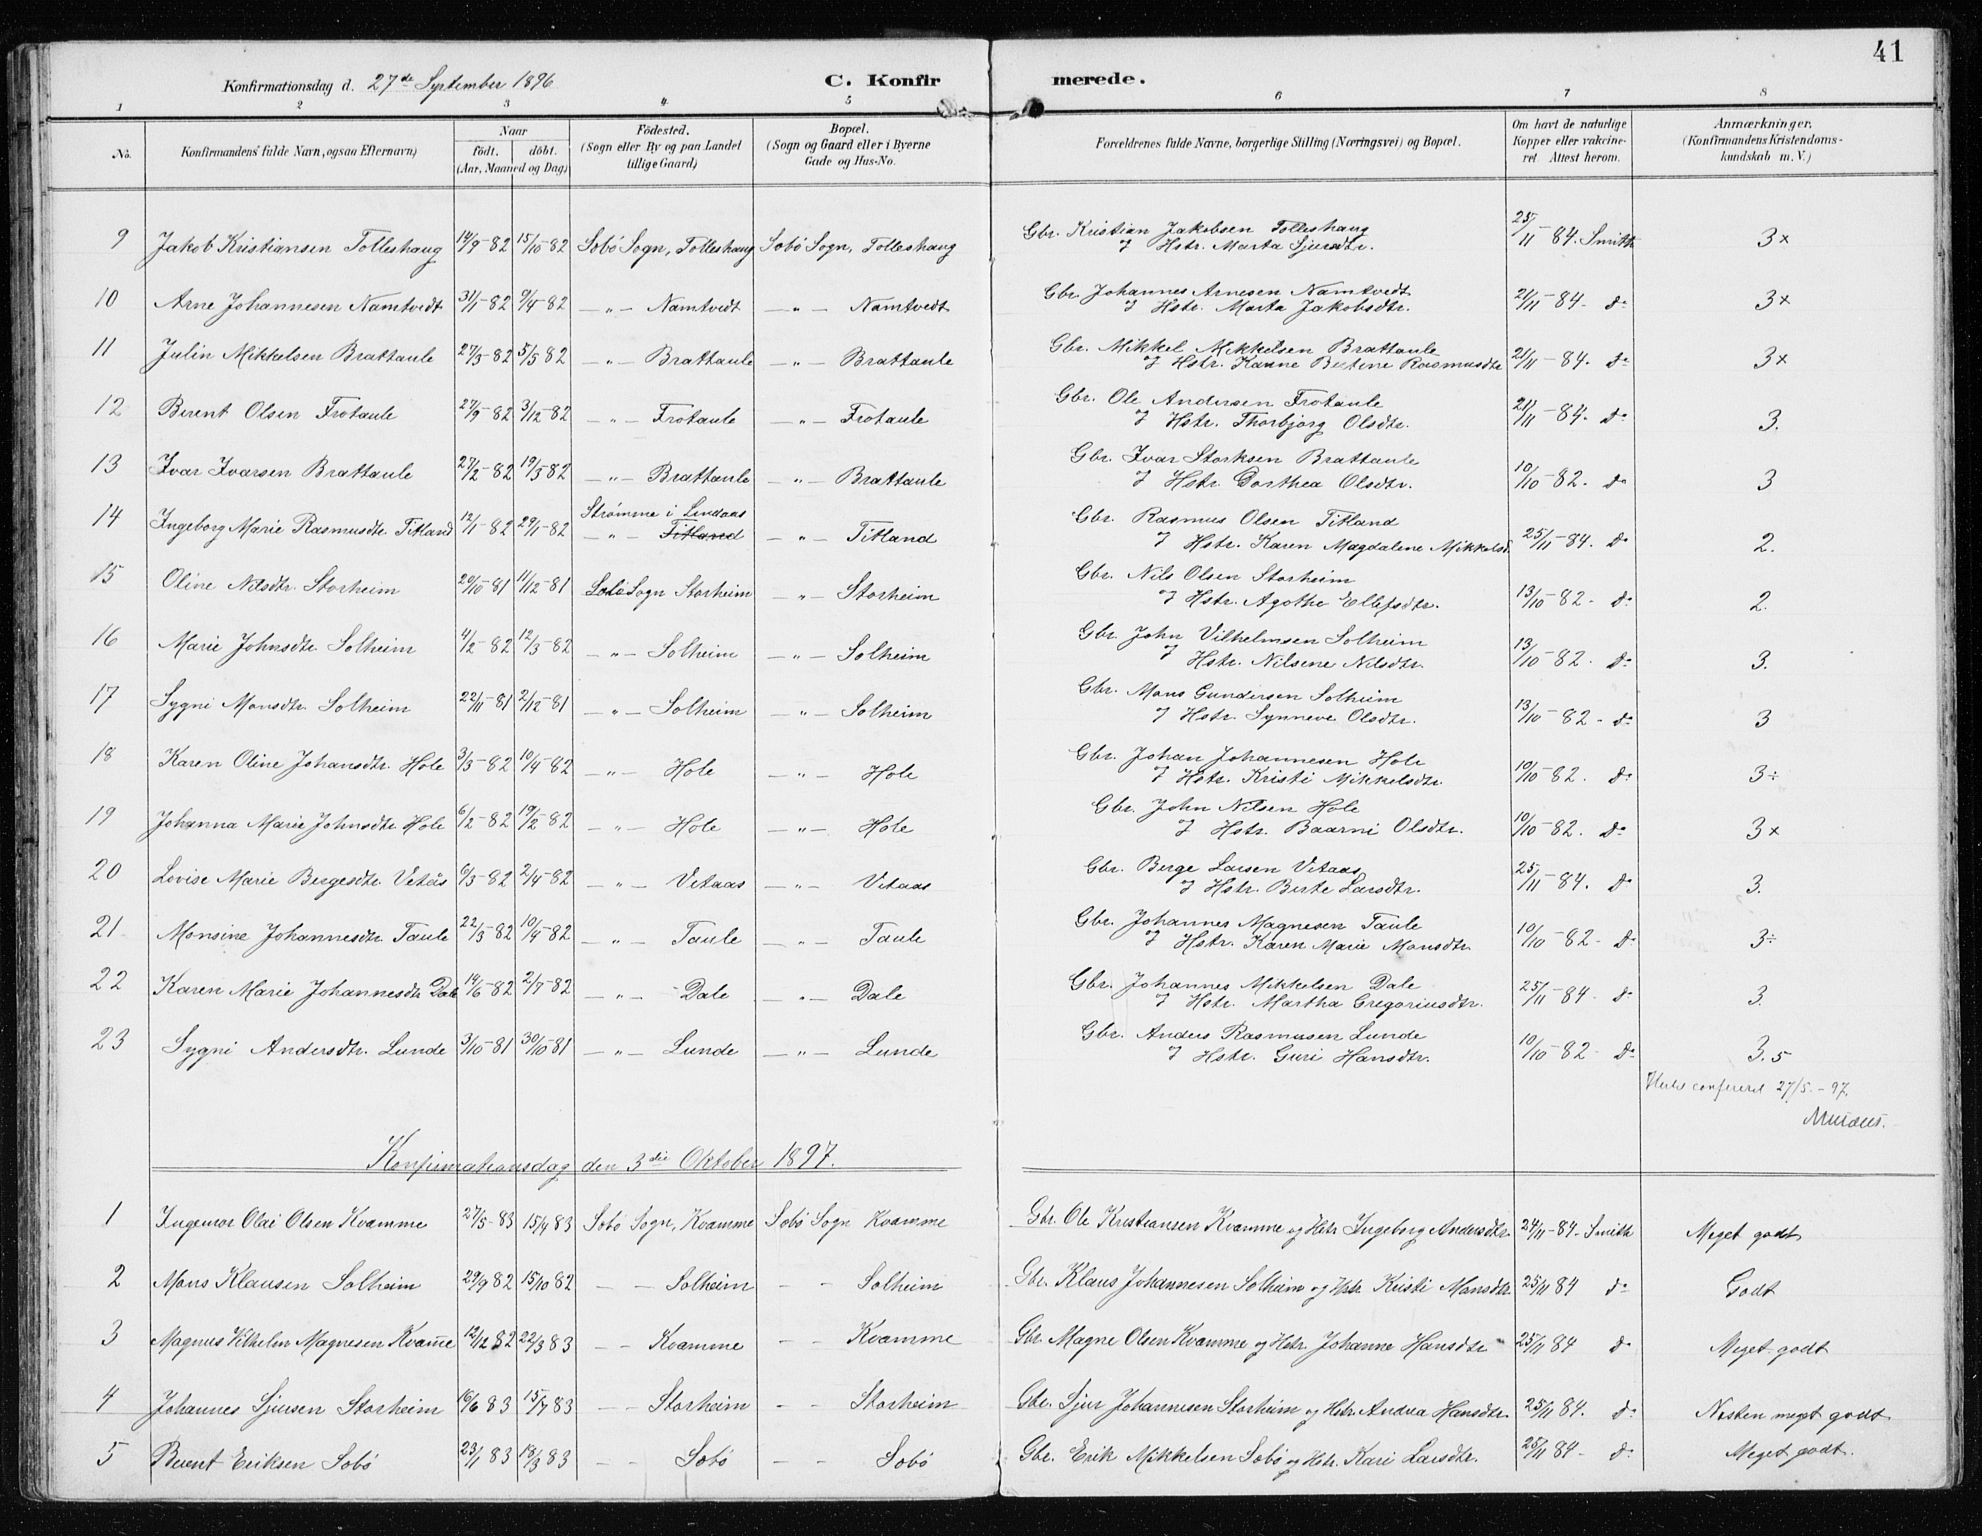 41
Konfirmationsdag d. 27de September 1896 C. Konfirmerede.
1 2 3 4 5 6 7 8
No. Konfirmandens fulde Navn, ogsaa Efternavn) Naar födt. döbt. (Aar, Maaned og Dag) Födested. (Sogn eller By og paa Landet tillige Gaard) Bopæl. (Sogn og Gaard eller i Byerne Gade og Hus-No. Forældrenes fulde Navne, borgerlige Stilling (Næringsvei) og Bopæl. Om havt de naturlige Kopper eller vakcineret. Attest herom. Anmærkninger. (Konfirmandens Kristendomskundskab m. V.)
9 Jakob Kristiansen Tolleshaug 14/9-82 15/10-82 Sobö Sogn, Tolleshaug Sobö Sogn, Tolleshaug Gbr. Kristian Jakobsen Tolleshaug 25/11-84. Smith 3x
J Hstr. Marta Sjursdtr.
10 Arne Johannesen Namtvedt 31/1-82 9/4-82 —"— Namtvedt —"— Namtvedt Gbr. Johannes Arnesen Namtvedt 21/11-84- do 3x
J Hstr. Marta Jakobsdtr.
11 Julin Mikkelsen Brattaule 27/3-82 5/5 82 —"— Brattaule —"— Brattaule Gbr. Mikkel Mikkelsen Brattaule 21/11-84. do 3x
J Hstr. Hanne Bertine Rasmusdtr
12 Berent Olsen Frotaule 27/9-82 3/12-82 —"— Frotaule —"— Frotaule Gbr. Ole Andersen Frotaule 21/11-84. do 3.
J Hstr. Thorbjörg Olsdtr.
13 Ivar Ivarsen Brattaule 27/2-82 19/3 82 —"— Brattaule —"— Brattaule Gbr. Ivar Storksen Brattaule 10/10-82. do 3
J Hstr. Dorthea Olsdtr.
14 Ingeborg Marie Rasmusdtr. Titland 12/1-82 29/1-82 Strömme i Lindaas —"— Titland —"— Titland Gbr. Rasmus Olsen Titland 25/11-84. do 2.
J Hstr. Karen Magdalene Mikkelsd.
15 Oline Nilsdtr. Storheim 20/10-81 11/12-81 Sobö Sogn Storheim —"— Storheim Gbr. Nils Olsen Storheim 13/10-82- do 2.
J Hstr. Agothe Ellefsdtr.
16 Marie Johnsdtr. Solheim 4/2-82 12/3-82 —"— Solheim —"— Solheim Gbr. John Vilhelmsen Solheim 13/10-82. do 3.
J Hstr. Nilsene Nilsdtr.
17 Sygni Monsdtr. Solheim 22/11-81 2/12-81 —"— Solheim —"— Solheim Gbr. Mons Gundersen Solheim 13/10-82- do 3
J Hstr. Synneve Olsdtr.
18 Karen Oline Johansdtr. Hole 3/3-82 10/4-82 —"— Hole —"— Hole Gbr. Johan Johannesen Hole 10/10-82. do 3÷
J Hstr. Kristi Mikkelsdtr.
19 Johanna Marie Johnsdtr Hole 6/2-82 19/2-82 —"— Hole —"— Hole Gbr. John Nilsen Hole 10/10-82. do 3x
J Hstr. Baarni Olsdtr.
20 Lovise Marie Bergesdtr. Vetås 6/3-82 2/4-82 —"— Vetaas —"— Vetaas Gbr. Berge Larsen Vetaas 25/11-84. do 3.
J Hstr. Birte Larsdtr.
21 Monsine Johannesdtr. Taule 22/3-82 10/4-82 —"— Taule —"— Taule Gbr. Johannes Magnesen Taule 10/10-82- do 3÷
J Hstr. Karen Marie Monsdtr.
22 Karen Marie Johannesdtr Dale 14/6-82 2/7-82 —"— Dale —"— Dale Gbr. Johannes Mikkelsen Dale 25/11-84 do 3.
J Hstr. Martha Gregoriusdtr.
23 Sygni Andersdtr. Lunde 3/10-81 30/10-81 —"— Lunde —"— Lunde Gbr. Anders Rasmusen Lunde 10/10-82- do 3.5
J Hstr. Guri Hansdtr.
confereret 27/5.-97.
Konfirmationsdag den 3die Oktober 1897.
1 Ingemor Olai Olsen Kvamme 27/5-83 15/4 83 Sobö Sogn, Kvamme Sobö Sogn Kvamme Gbr. Ole Kristiansen Kvamme og Hstr Ingeborg Andersdtr. 24/11-84. Smith Meget godt
2 Mons Klausen Solheim 29/9 82 15/10 82 — — Solheim — — Solheim Gbr. Klaus Johannesen Solheim og Hstr Kristi Monsdtr. 25/11 84 do Godt
3 Magnus Vilhelm Magnesen Kvamme 12/12 82 22/3 83 — — Kvamme — — Kvamme Gbr Magne Olsen Kvamme og Hstr. Johanne Hansdtr 25/11 84 do Meget godt
4 Johannes Sjursen Storheim 16/6 83 15/7 83 — — Storheim — — Storheim Gbr. Sjur Johannesen Storheim og Hstr Andrea Hansdtr. 25/11 84. do Næsten meget godt
5 Berent Eriksen Sobö 23/1 83 18/3 83 — — Sobö — — Sobö Gbr. Erik Mikkelsen Sobö og Hstr. Kari Larsdtr. 25/11 84- do Meget godt.